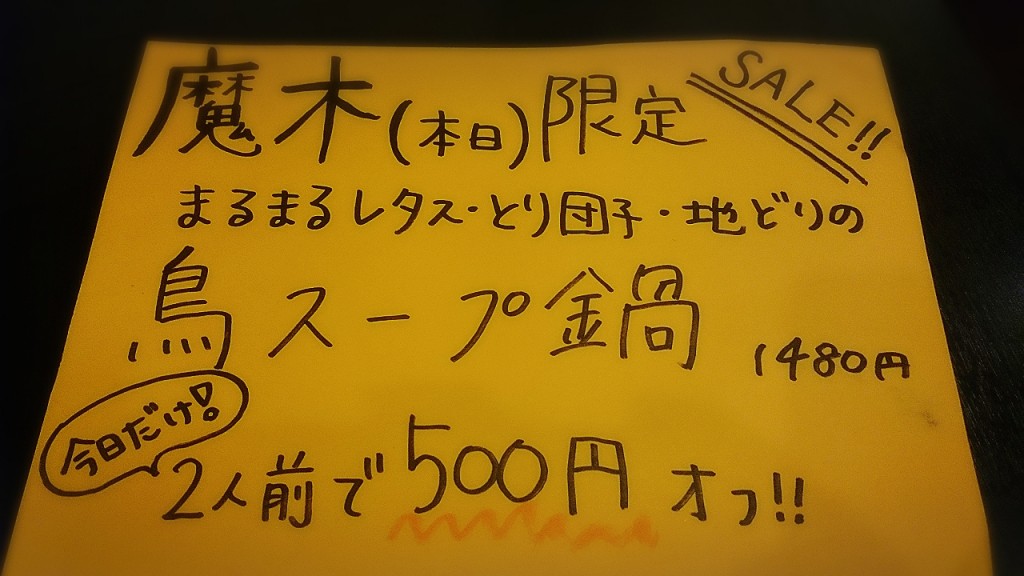 魔木(本日)限定
SALE!!
まるまるレタス・とり団子・地どりの
鳥スープ鍋 1480円
今日だけ!
2人前で500円オフ!!